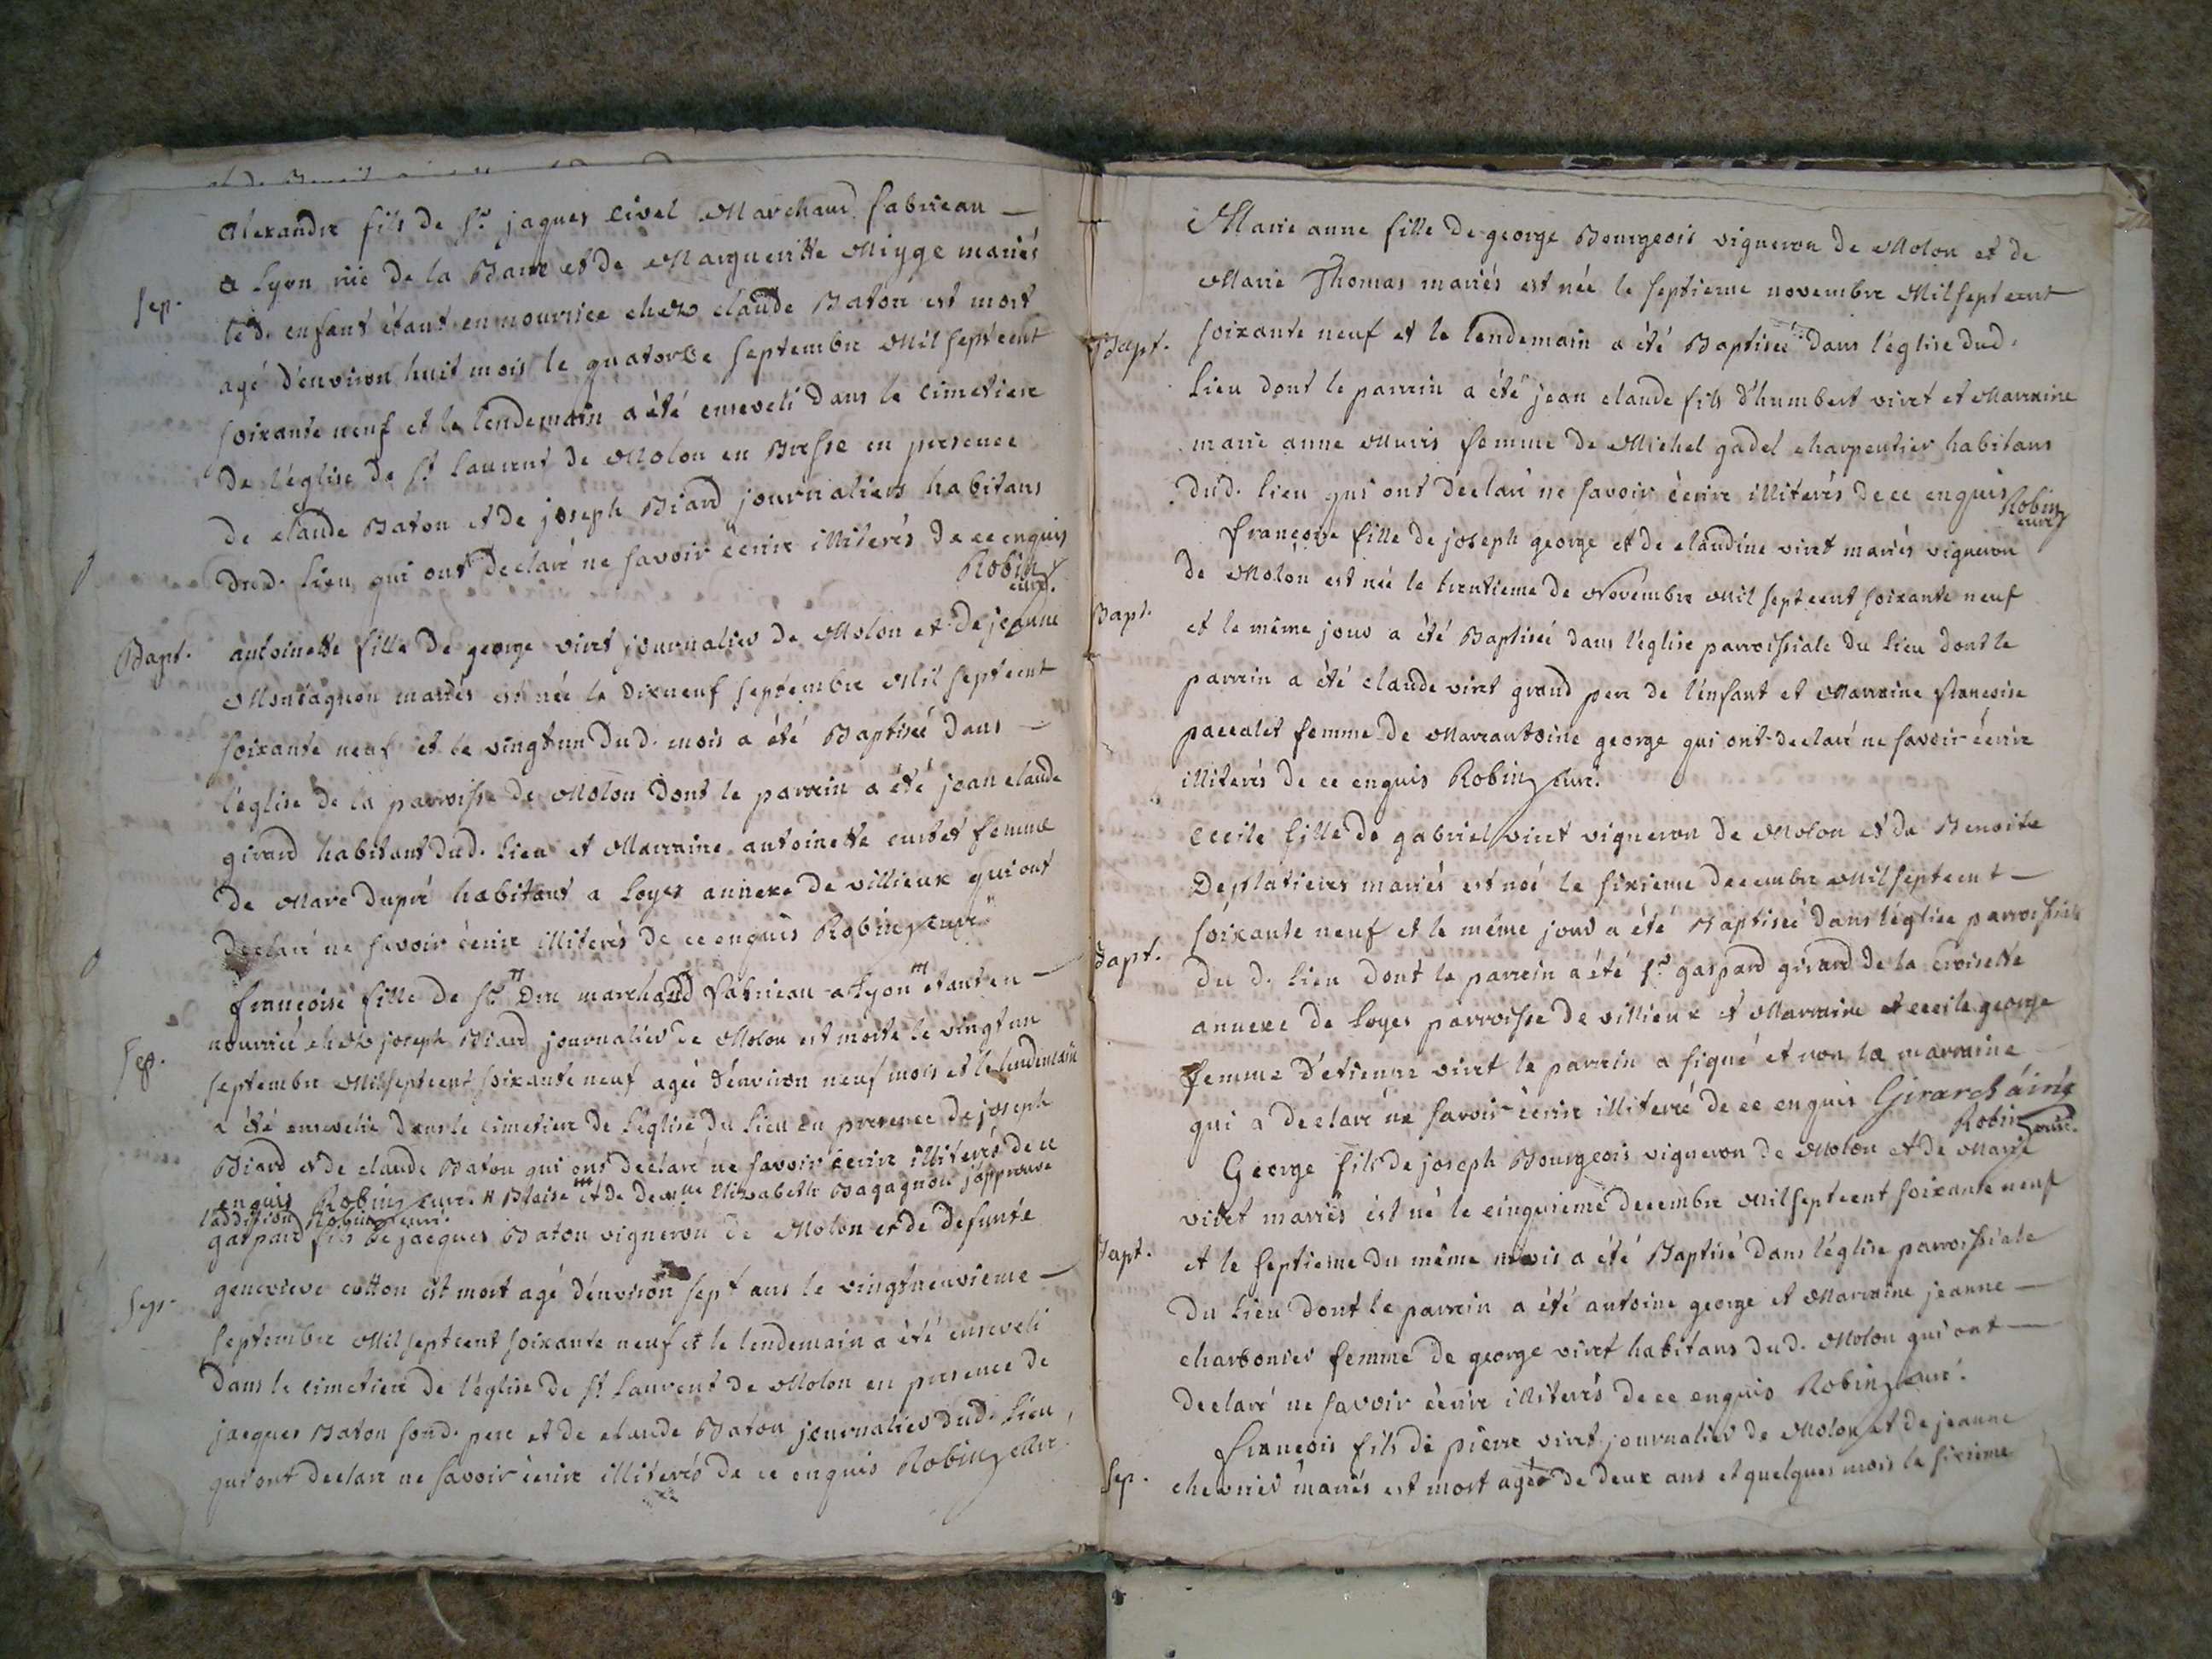 Alexandre fils de Sr. jaques civel Marchand fabrican
a Lyon ruë de la Barre et de Margueritte Miyge mariés
Sep.
led. enfant étant en nourrice chez claude Baton est mort
agé d'environ huit mois le quatorze septembre Mil sept cent
soixante neuf et le lendemain a été enseveli dans le cimetiere
de l'église de St. Laurent de Molon en Bresse en presence
de claude Baton et de joseph Biard journaliers habitans
dud. lieu qui ont declaré ne savoir ècrire illiterés de ce enquis
Robin
curé.
Bapt.
antoinette fille de george viret journalier de Molon et de jeanne
Montagnon mariés est née le dixneuf septembre Mil sept cent
soixante neuf et le vingt un dud. mois a été Baptisée dans
l'église de la parroisse de Molon dont le parrein a été jean claude
girard habitant dud. lieu et Marraine antoinette curtet femme
de Marc dupré habitant a Loyes annexe de villieux qui ont
declaré ne savoir ècrire illiterés de ce enquis Robin curé
françoise fille de Sr. # Dre marchand fabrican a Lyon # etant en
nourrice chez joseph Biard journalier de Molon est morte le vingt un
Sep.
septembre Mil sept cent soixante neuf agée d'environ neuf mois et le lendemain
a été ensevelie dans le cimetiere de l'église du lieu en presence de joseph
Biard et de claude Baton qui ont declaré ne savoir ècrire illiterés de ce
enquis Robin curé. # Blaise # et de demlle Elizabeth Bagagnon j'approuve
l'addition Robin curé.
gaspard fils de jacques Baton vigneron de Molon et de defunte
genevieve cotton est mort agé d'environ sept ans le vingt neuvieme
Sep.
septembre Mil sept cent soixante neuf et le lendemain a été enseveli
dans le cimetiere de l'église de St. Laurent de Molon en presence de
jacques Baton sond. pere et de claude Baton journalier dud. lieu
qui ont declaré ne savoir ècrire illiterés de ce enquis Robin curé.
Marie anne fille de george Bourgeois vigneron de Molon et de
Marie Thomas mariés est née le septieme novembre Mil sept cent
Bapt.
soixante neuf et le lendemain a été Baptisée dans l'église dud.
lieu dont le parrein a été jean claude fils d'humbert viret et Marraine
marie anne Muris femme de Michel gadel charpentier habitans
dud. lieu qui ont declaré ne savoir ècrire illiterés de ce enquis Robin
curé
françoise fille de joseph george et de claudine viret mariés vigneron
de Molon est née le trentieme de Novembre Mil sept cent soixante neuf
Bapt.
et le même jour a été Baptisée dans l'église parroissiale du lieu dont le
parrein a été claude viret grand pere de l'enfant et Marraine francoise
paccalet femme de Marc antoine george qui ont declaré ne savoir ècrire
illiterés de ce enquis Robin curé.
Cecile fille de gabriel viret vigneron de Molon et de Benoite
Desplatieres mariés est née le sixieme decembre Mil sept cent
soixante neuf et le même jour a été Baptisée dans l'église parroissiale
Bapt.
du d. lieu dont le parrein a été Sr. gaspard girard de la Croisette
annexe de Loyes parroisse de villieux et Marraine et cecile george
femme d'etienne viret le parrein a signé et non la marraine
qui a declaré ne savoir ècrire illiterée de ce enquis Girard áiné
Robin curé.
George fils de joseph Bourgeois vigneron de Molon et de Marie
viret mariés est né le cinquieme decembre Mil sept cent soixante neuf
Bapt.
et le septieme du même mois a été Baptisé dans l'église parroissiale
du lieu dont le parrein a été antoine george et Marraine jeanne
charbonier femme de george viret habitans dud. Molon qui ont
declaré ne savoir ècrire illiterés de ce enquis Robin curé.
françois fils de pierre viret journalier de Molon et de jeanne
Sep.
chevrier mariés est mort agé de deux ans et quelques mois le sixieme